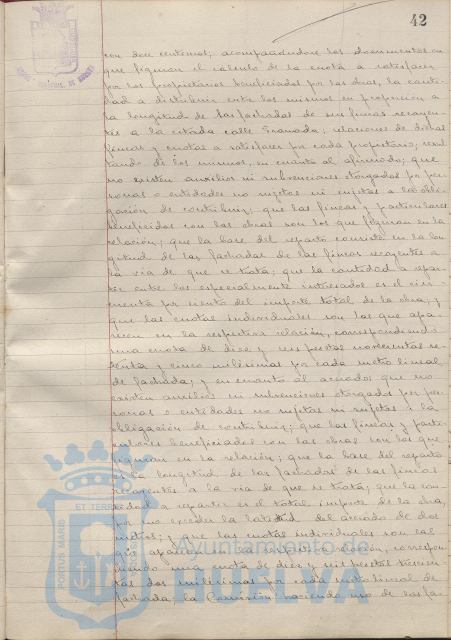 42
con doce centimos; acompañandose los documentos en
que figuran el cálculo de la cuota a satisfacer
por los propietarios beneficiados por las obras, la canti-
dad a distribuir entre los mismos en proporcion a
la longitud de las fachadas de sus fincas recayen-
tes a la citada calle Granada; relaciones de dichas
fincas y cuotas a satisfacer por cada propietario; resul-
tando de los mismos, en cuanto al afirmado; que
no existen auxilios ni subvenciones otorgados por per-
sonas o entidades no sujetas ni sujetas a la obli-
gación de contribuir; que las fincas y particulares
beneficiados con las obras son los que figuran en la
relación; que la base del reparto consiste en la lon-
gitud de las fachadas de las fincas recayentes a
la via de que se trata; que la cantidad a repar-
tir entre los especialmente interesados es el cin-
cuenta por ciento del importe total de la obra; y
que las cuotas individuales son las que apa-
recen en la respectiva relación, correspondiendo
una cuota de diez y seis pesetas novecientas se-
tenta y cinco milesimas por cada metro lineal
de fachada; y en cuanto al acerados que no
existen auxilios ni subvenciones otorgados por per-
sonas o entidades no sujetas ni sujetas a la
obligación de contribuir; que las fincas y parti-
culares beneficiados con las obras son los que
figuran en la relación; que la base del reparto
es la longitud de las fachadas de las fincas
recayentes a la via de que se trata; que la can-
tidad a repartir es el total importe de la obra,
por no exceder la latitud del acerado de dos
metros; y que las cuotas individuales son las
que aparecen en la respectiva relación, correspon-
diendo una cuota de diez y seis pesetas trescien-
tas dos milesimas por cada metro lineal de
fachada; la Comisión haciendo uso de las fa-
PORTUS MARIS ET TERRAE
Ayuntamiento de
HUELVA